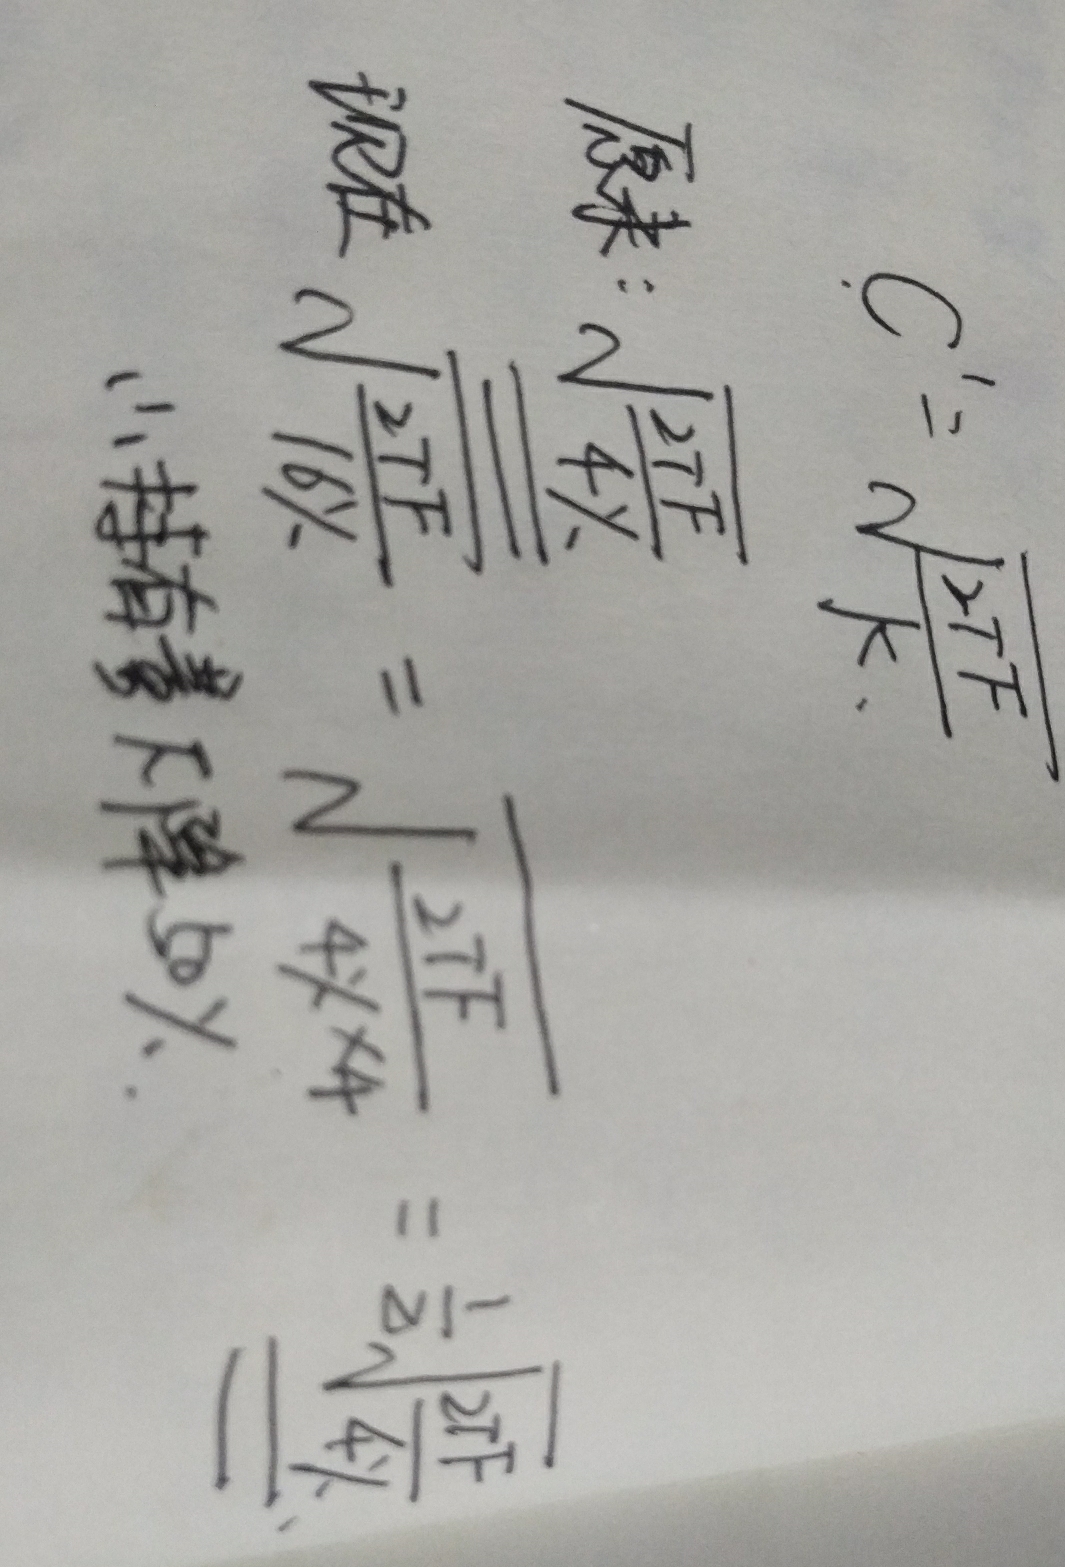 C' = √(2TF/K).
原来: √(2TF/4%)
现在 √(2TF/16%) = √(2TF/(4%×4)) = 1/2 √(2TF/4%)
∴持有量下降50%.